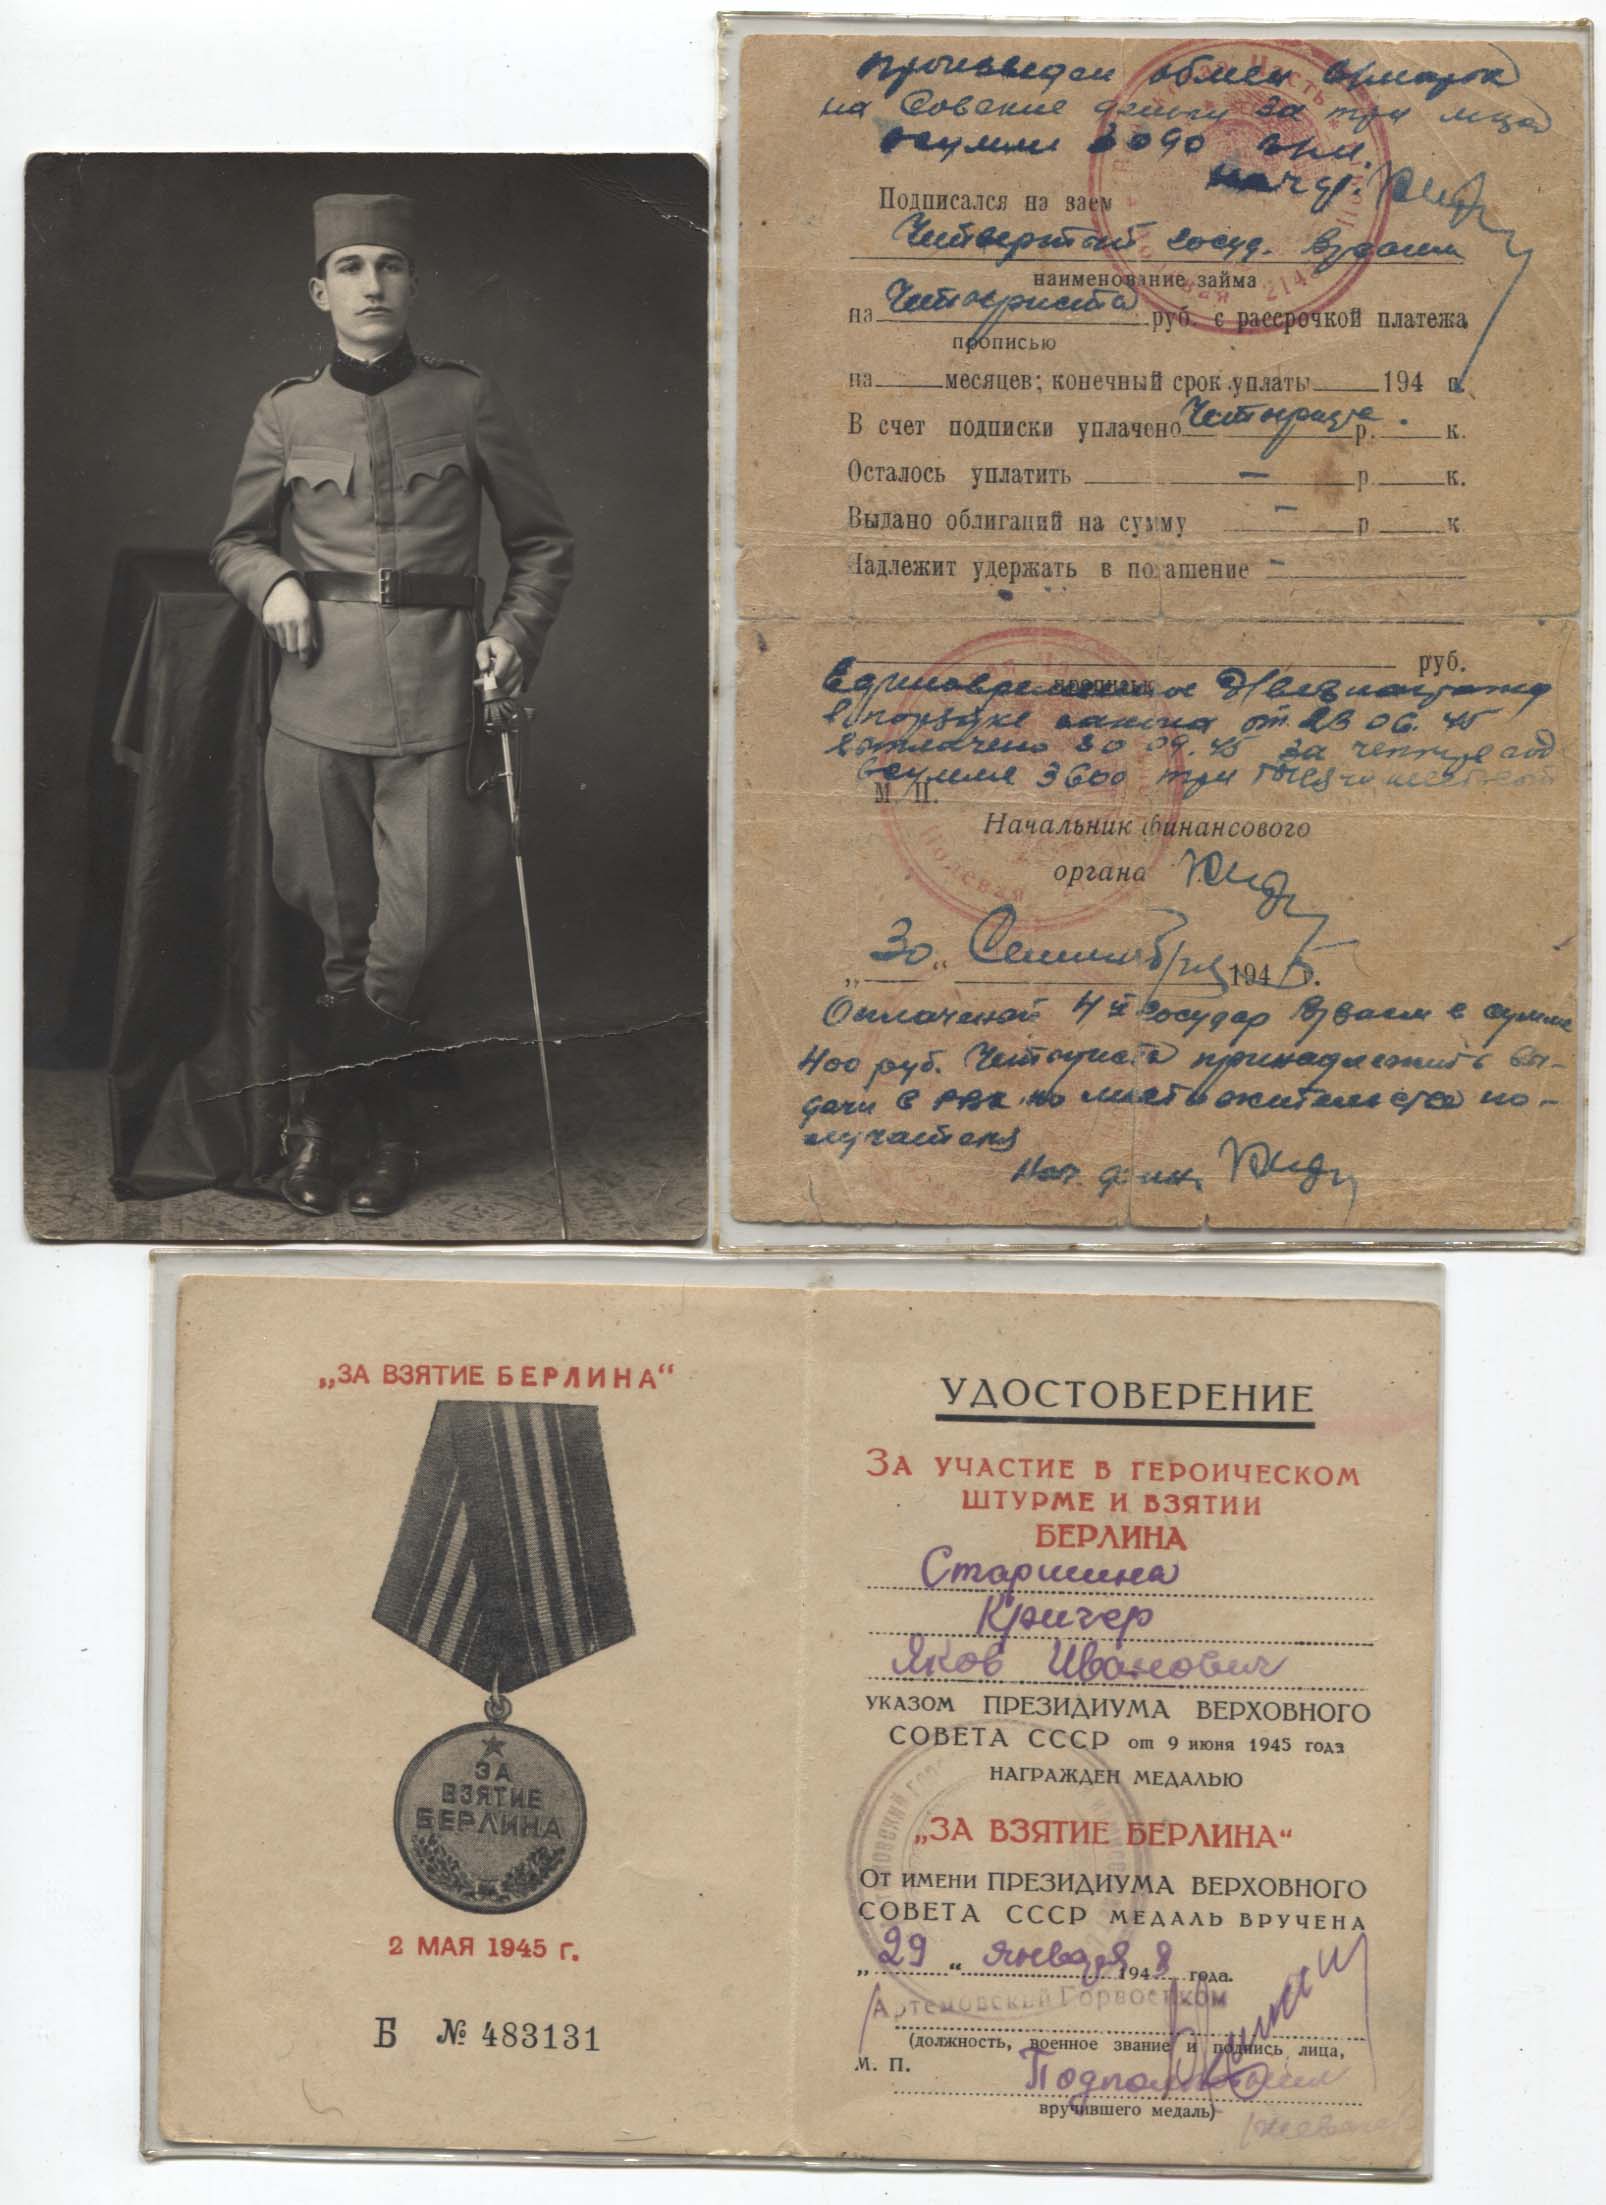 произведен обмен в/марок
на Совские деньги за три м-ца
в сумме 3090 г/м.
нач ф.
Подписался на заем
Четвертый госуд. в/заем
наименование займа
на Четыриста руб. с рассрочкой платежа
прописью
на месяцев; конечный срок уплаты 194 г.
В счет подписки уплачено Четыриста р. к.
Осталось уплатить — р. к.
Выдано облигаций на сумму — р. к.
Надлежит удержать в погашение —
руб.
прописью
Единовременное
в порядке закона от 23 06. 45
выплачено 30 09. 45 за четыре год
в сумме 3600 три тысячи шестьсот
М. П.
Начальник финансового
органа
„30“ Сентября 1945 г.
Оплаченой 4й государ в/заем в сумме
400 руб. Четыриста принадлежить вы-
дачи в РВК по месту жительства по-
лучателя
Нач. фин.
Полевая
„ЗА ВЗЯТИЕ БЕРЛИНА“
ЗА
ВЗЯТИЕ
БЕРЛИНА
2 МАЯ 1945 г.
Б № 483131
УДОСТОВЕРЕНИЕ
ЗА УЧАСТИЕ В ГЕРОИЧЕСКОМ
ШТУРМЕ И ВЗЯТИИ
БЕРЛИНА
Старшина
Кригер
Яков Иванович
УКАЗОМ ПРЕЗИДИУМА ВЕРХОВНОГО
СОВЕТА СССР от 9 июня 1945 года
НАГРАЖДЕН МЕДАЛЬЮ
„ЗА ВЗЯТИЕ БЕРЛИНА“
ОТ ИМЕНИ ПРЕЗИДИУМА ВЕРХОВНОГО
СОВЕТА СССР МЕДАЛЬ ВРУЧЕНА
„29“ января 1948 года.
Артемовский Горвоенком
(должность, военное звание и подпись лица,
М. П.
Подполковник
вручившего медаль)